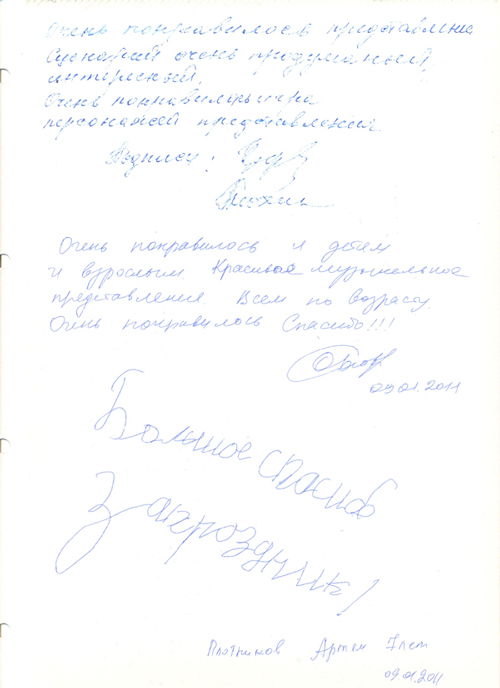 Очень понравилось представление
Сценарий очень продуманный,
интересный.
Очень понравилась игра
персонажей представления.
Подписи:
Очень понравилось и детям
и взрослым Красивое музыкальное
представления Всем по возрасту.
Очень понравилось Спасибо!!!
09.01.2011
Большое спасибо
За праздник!
Плотников Артем 7 лет
09.01.2011